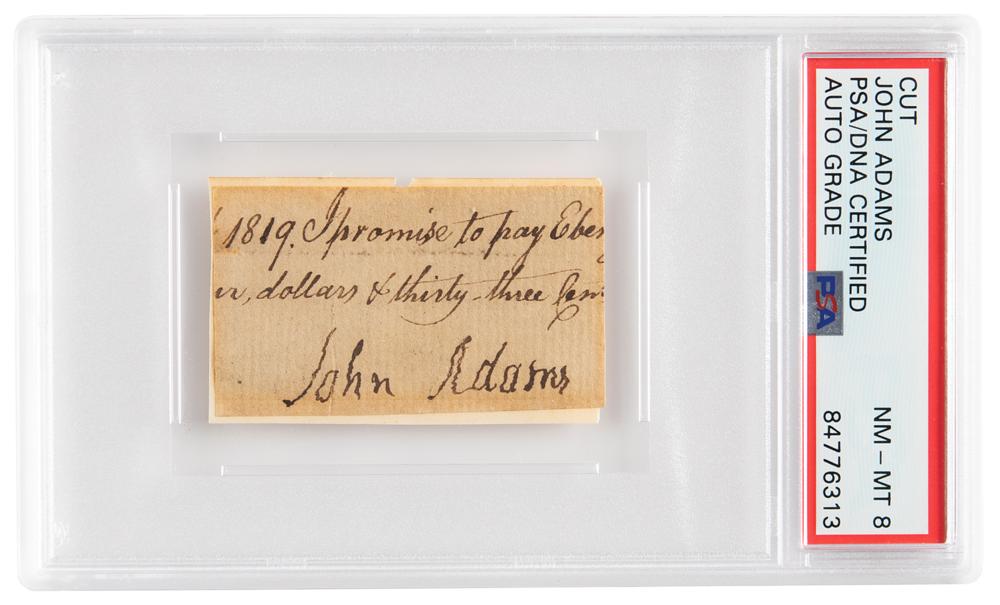 1819. I promise to pay Eben
dollars & thirty-three Cen
John Adams
CUT
JOHN ADAMS
PSA/DNA CERTIFIED
AUTO GRADE
NM-MT 8
84776313
PSA